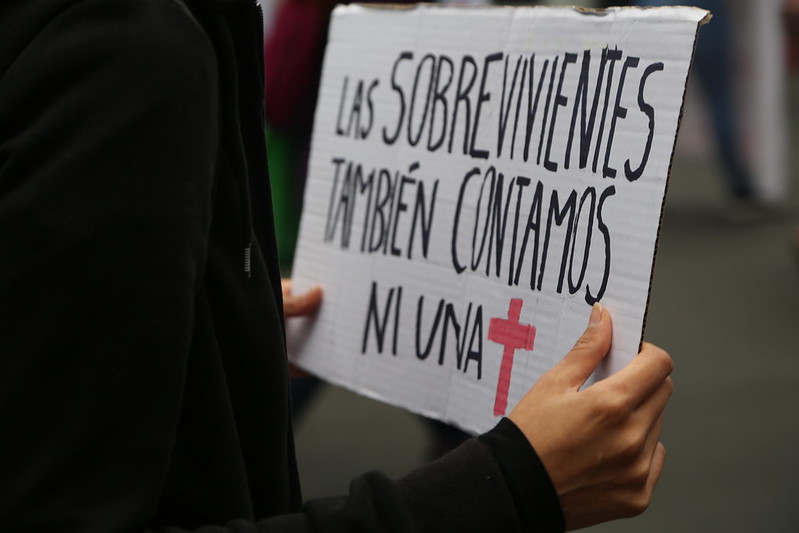 LAS SOBREVIVIENTES
TAMBIÉN CONTAMOS
NI UNA